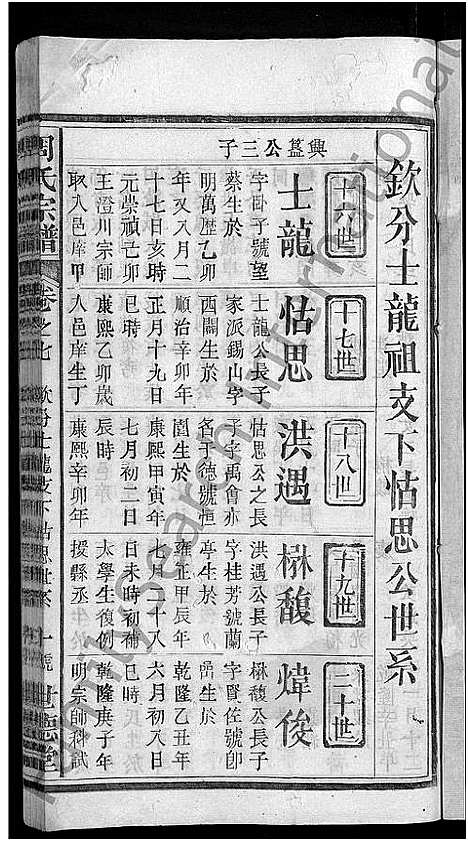 欽分士龍祖支下怙思公世系
興簋公三子
十六世
士龍
字卧子號望
蔡生於
明萬歷乙卯
年又八月二
十七日亥時
元崇禎己卯
王澄川宗師
取入邑庠甲
十七世
怙思
士龍公長子
家派錫山字
西關生於
順治辛卯年
正月十九日
巳時
康熙乙卯歲
入邑庠生丁
十八世
洪遇
怙思公之長
子字禹會亦
名于德號恒
圃生於
康熙甲寅年
七月初二日
辰時
康熙辛卯年
十九世
楙馥
洪遇公長子
字桂芳號蘭
亭生於
雍正甲辰年
七月二十八
日未時初補
太學生復例
援縣丞年于
二十世
煒俊
楙馥公長子
字賢佐號卽
嵒生於
乾隆乙丑年
六月初八日
巳時
乾隆庚子年
明宗師科試
周氏宗譜
卷之七
欽分士龍支下怙思世系
十號
世德堂